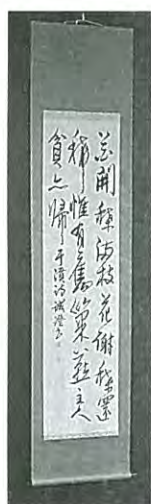 花開蝶滿枝花謝蝶還
稀惟有舊巢燕主人
貧亦歸 于濆詩